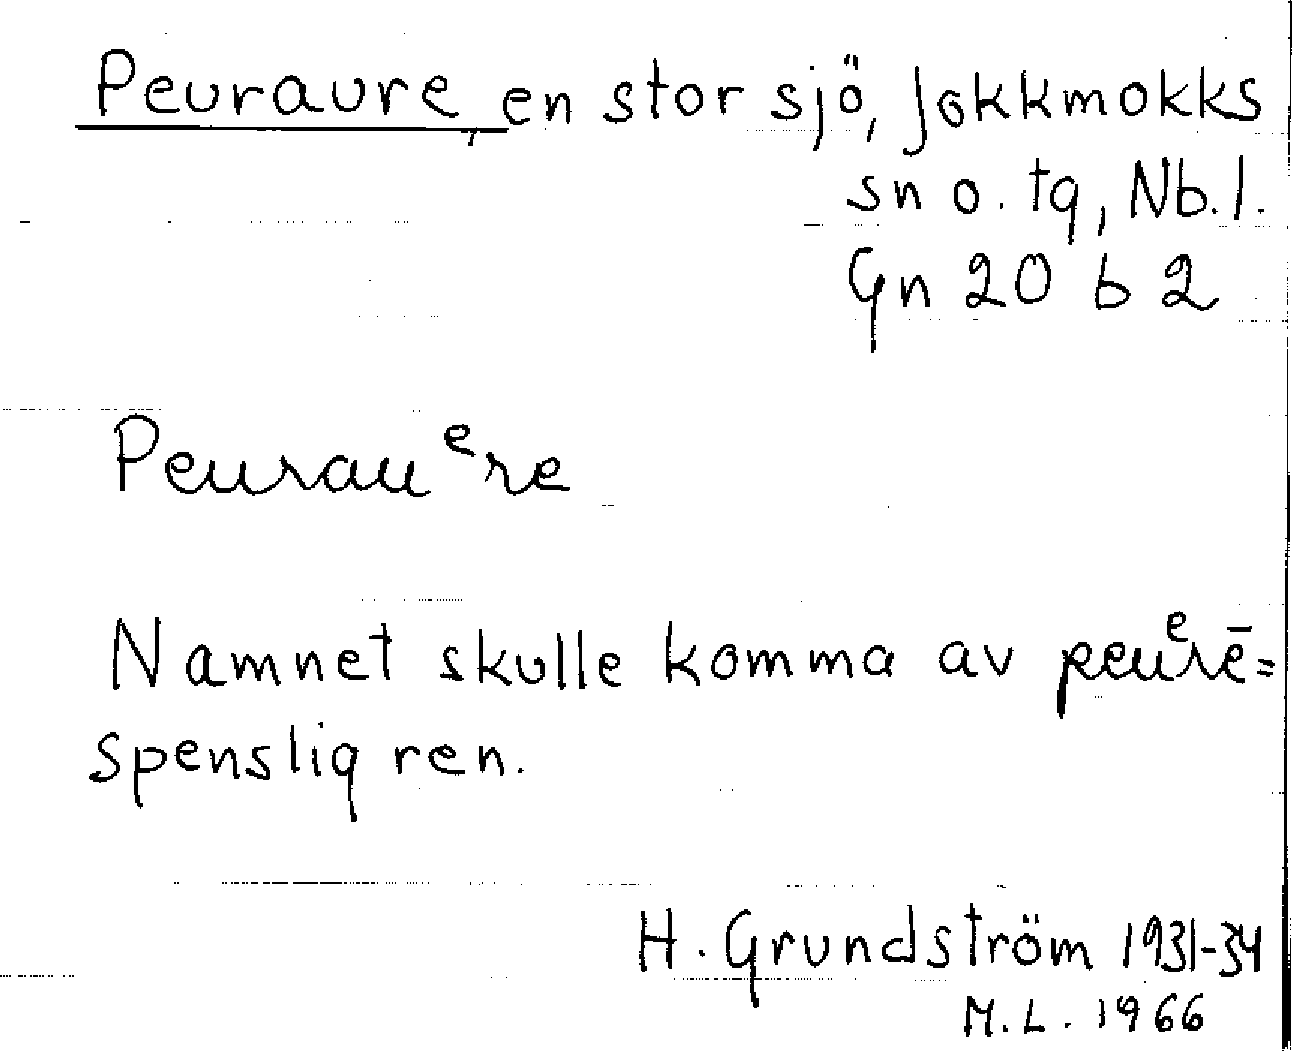 Peuraure, en stor sjö, Jokkmokks
sn o. tg, Nb.l.
Gn 20 b 2
Peurauᵉre
Namnet skulle komma av peuᵉrē=
spenslig ren.
H. Grundström 1931-34
M.L. 1966